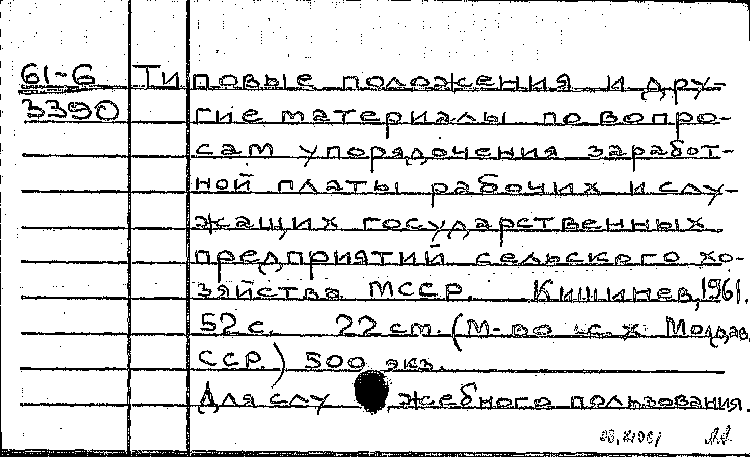 61-6 Типовые положения и дру-
3390 гие материалы по вопро-
сам упорядочения заработ-
ной платы рабочих и слу-
жащих государственных
предприятий сельского хо-
зяйства МССР. Кишинев, 1961.
52 с. 22 cm. (М-во с. х. Молдав.
ССР.) 500 экз.
Для служебного пользования.